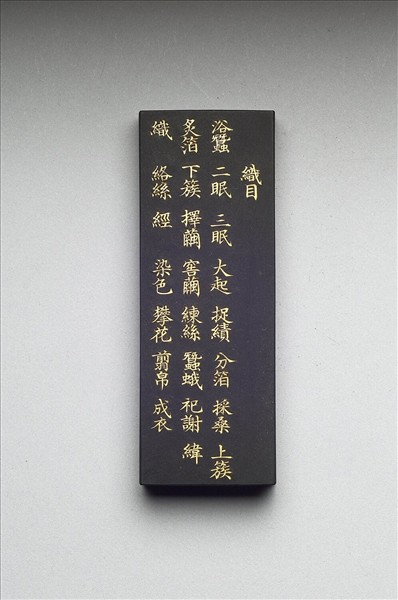 織目
浴蠶 二眠 三眠 大起 捉績 分箔 採桑 上簇
炙箔 下簇 擇繭 窖繭 練絲 蠶蛾 祀謝 緯
織 絡絲 經 染色 攀花 剪帛 成衣